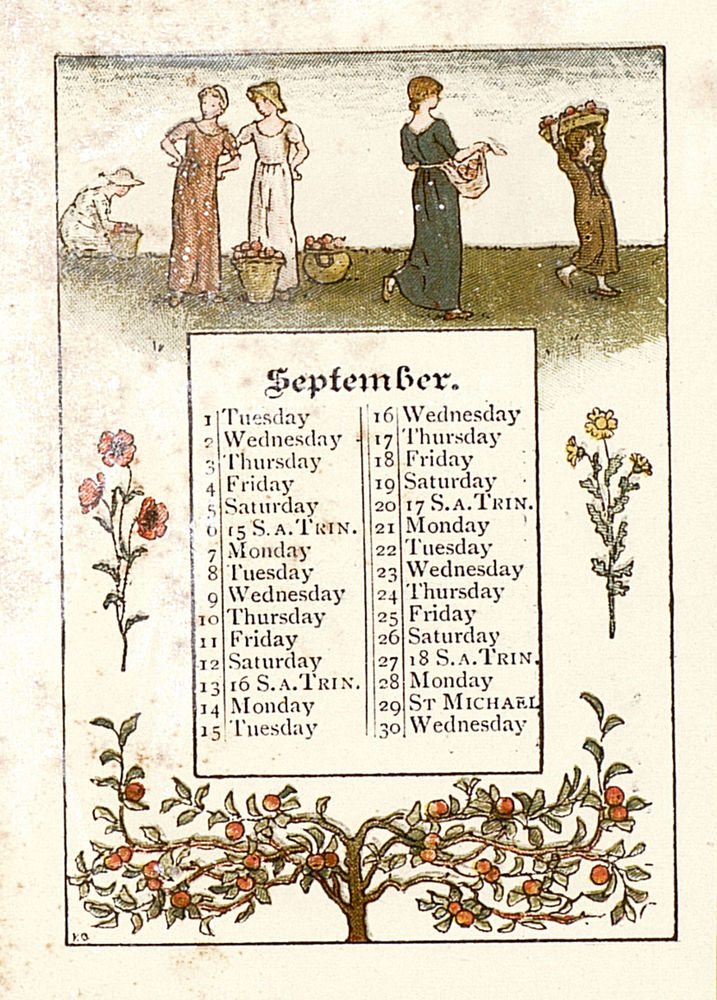 September.
1 Tuesday
2 Wednesday
3 Thursday
4 Friday
5 Saturday
6 15 S.A.TRIN.
7 Monday
8 Tuesday
9 Wednesday
10 Thursday
11 Friday
12 Saturday
13 16 S.A.TRIN.
14 Monday
15 Tuesday
16 Wednesday
17 Thursday
18 Friday
19 Saturday
20 17 S.A.TRIN.
21 Monday
22 Tuesday
23 Wednesday
24 Thursday
25 Friday
26 Saturday
27 18 S.A.TRIN.
28 Monday
29 ST MICHAEL
30 Wednesday